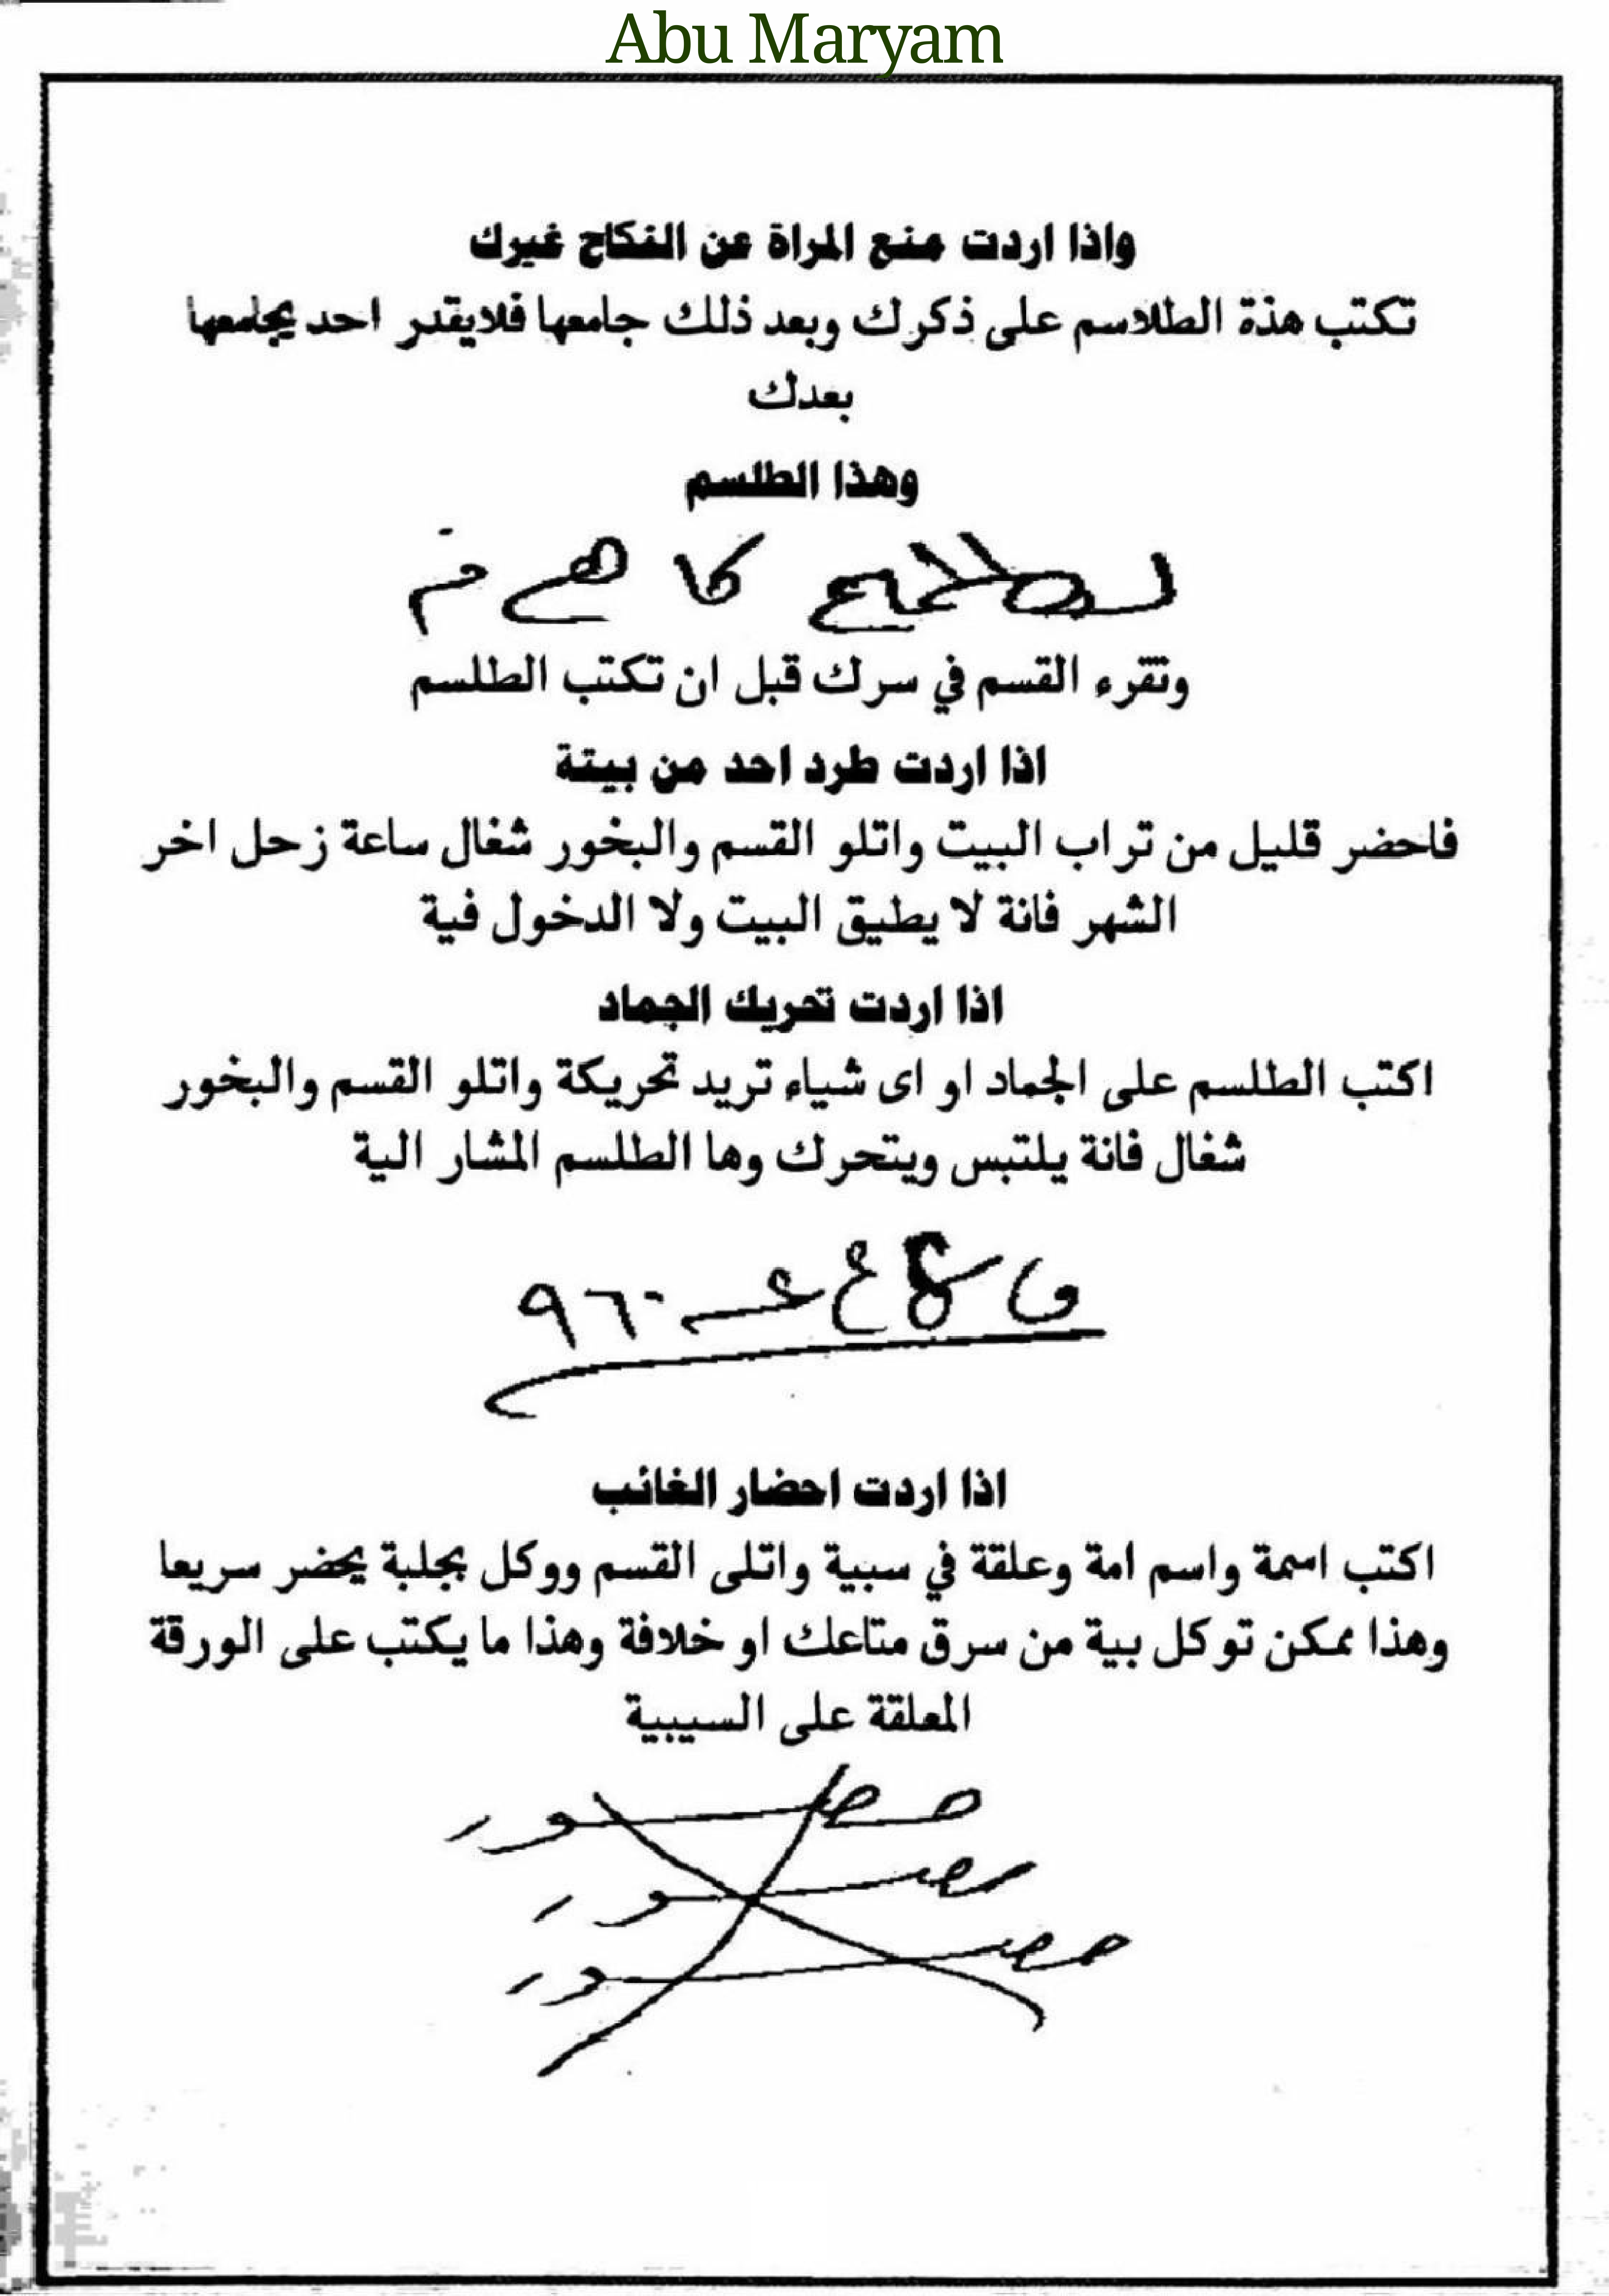 Abu Maryam
واذا اردت منع المراة عن النكاح غيرك
تكتب هذة الطلاسم على ذكرك وبعد ذلك جامعها فلايقدر احد يجامعها
بعدك
وهذا الطلسم
وتقرء القسم في سرك قبل ان تكتب الطلسم
اذا اردت طرد احد من بيتة
فاحضر قليل من تراب البيت واتلو القسم والبخور شغال ساعة زحل اخر
الشهر فانة لا يطيق البيت ولا الدخول فية
اذا اردت تحريك الجماد
اكتب الطلسم على الجماد او اى شياء تريد تحريكة واتلو القسم والبخور
شغال فانة يلتبس ويتحرك وها الطلسم المشار الية
اذا اردت احضار الغائب
اكتب اسمة واسم امة وعلقة في سبية واتلى القسم ووكل بجلبة يحضر سريعا
وهذا ممكن توكل بية من سرق متاعك او خلافة وهذا ما يكتب على الورقة
المعلقة على السيبية